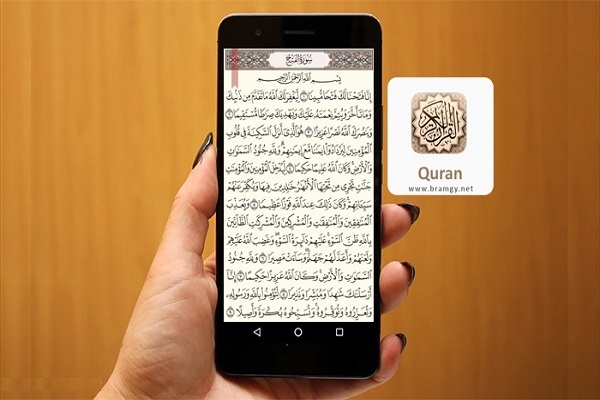 سُورَةُ الفَتْحِ
بِسْمِ ٱللَّهِ ٱلرَّحْمَٰنِ ٱلرَّحِيمِ
إِنَّا فَتَحْنَا لَكَ فَتْحًا مُّبِينًا ١ لِّيَغْفِرَ لَكَ ٱللَّهُ مَا تَقَدَّمَ مِن ذَنۢبِكَ
وَمَا تَأَخَّرَ وَيُتِمَّ نِعْمَتَهُۥ عَلَيْكَ وَيَهْدِيَكَ صِرَٰطًا مُّسْتَقِيمًا ٢
وَيَنصُرَكَ ٱللَّهُ نَصْرًا عَزِيزًا ٣ هُوَ ٱلَّذِىٓ أَنزَلَ ٱلسَّكِينَةَ فِى قُلُوبِ
ٱلْمُؤْمِنِينَ لِيَزْدَادُوٓا۟ إِيمَٰنًا مَّعَ إِيمَٰنِهِمْ وَلِلَّهِ جُنُودُ ٱلسَّمَٰوَٰتِ
وَٱلْأَرْضِ وَكَانَ ٱللَّهُ عَلِيمًا حَكِيمًا ٤ لِّيُدْخِلَ ٱلْمُؤْمِنِينَ وَٱلْمُؤْمِنَٰتِ
جَنَّٰتٍ تَجْرِى مِن تَحْتِهَا ٱلْأَنْهَٰرُ خَٰلِدِينَ فِيهَا وَيُكَفِّرَ عَنْهُمْ
سَيِّـَٔاتِهِمْ وَكَانَ ذَٰلِكَ عِندَ ٱللَّهِ فَوْزًا عَظِيمًا ٥ وَيُعَذِّبَ
ٱلْمُنَٰفِقِينَ وَٱلْمُنَٰفِقَٰتِ وَٱلْمُشْرِكِينَ وَٱلْمُشْرِكَٰتِ ٱلظَّآنِّينَ
بِٱللَّهِ ظَنَّ ٱلسَّوْءِ عَلَيْهِمْ دَآئِرَةُ ٱلسَّوْءِ وَغَضِبَ ٱللَّهُ عَلَيْهِمْ
وَلَعَنَهُمْ وَأَعَدَّ لَهُمْ جَهَنَّمَ وَسَآءَتْ مَصِيرًا ٦ وَلِلَّهِ جُنُودُ
ٱلسَّمَٰوَٰتِ وَٱلْأَرْضِ وَكَانَ ٱللَّهُ عَزِيزًا حَكِيمًا ٧ إِنَّآ
أَرْسَلْنَٰكَ شَٰهِدًا وَمُبَشِّرًا وَنَذِيرًا ٨ لِّتُؤْمِنُوا۟ بِٱللَّهِ وَرَسُولِهِۦ
وَتُعَزِّرُوهُ وَتُوَقِّرُوهُ وَتُسَبِّحُوهُ بُكْرَةً وَأَصِيلًا ٩
القرآن الكريم
Quran
www.bramgy.net